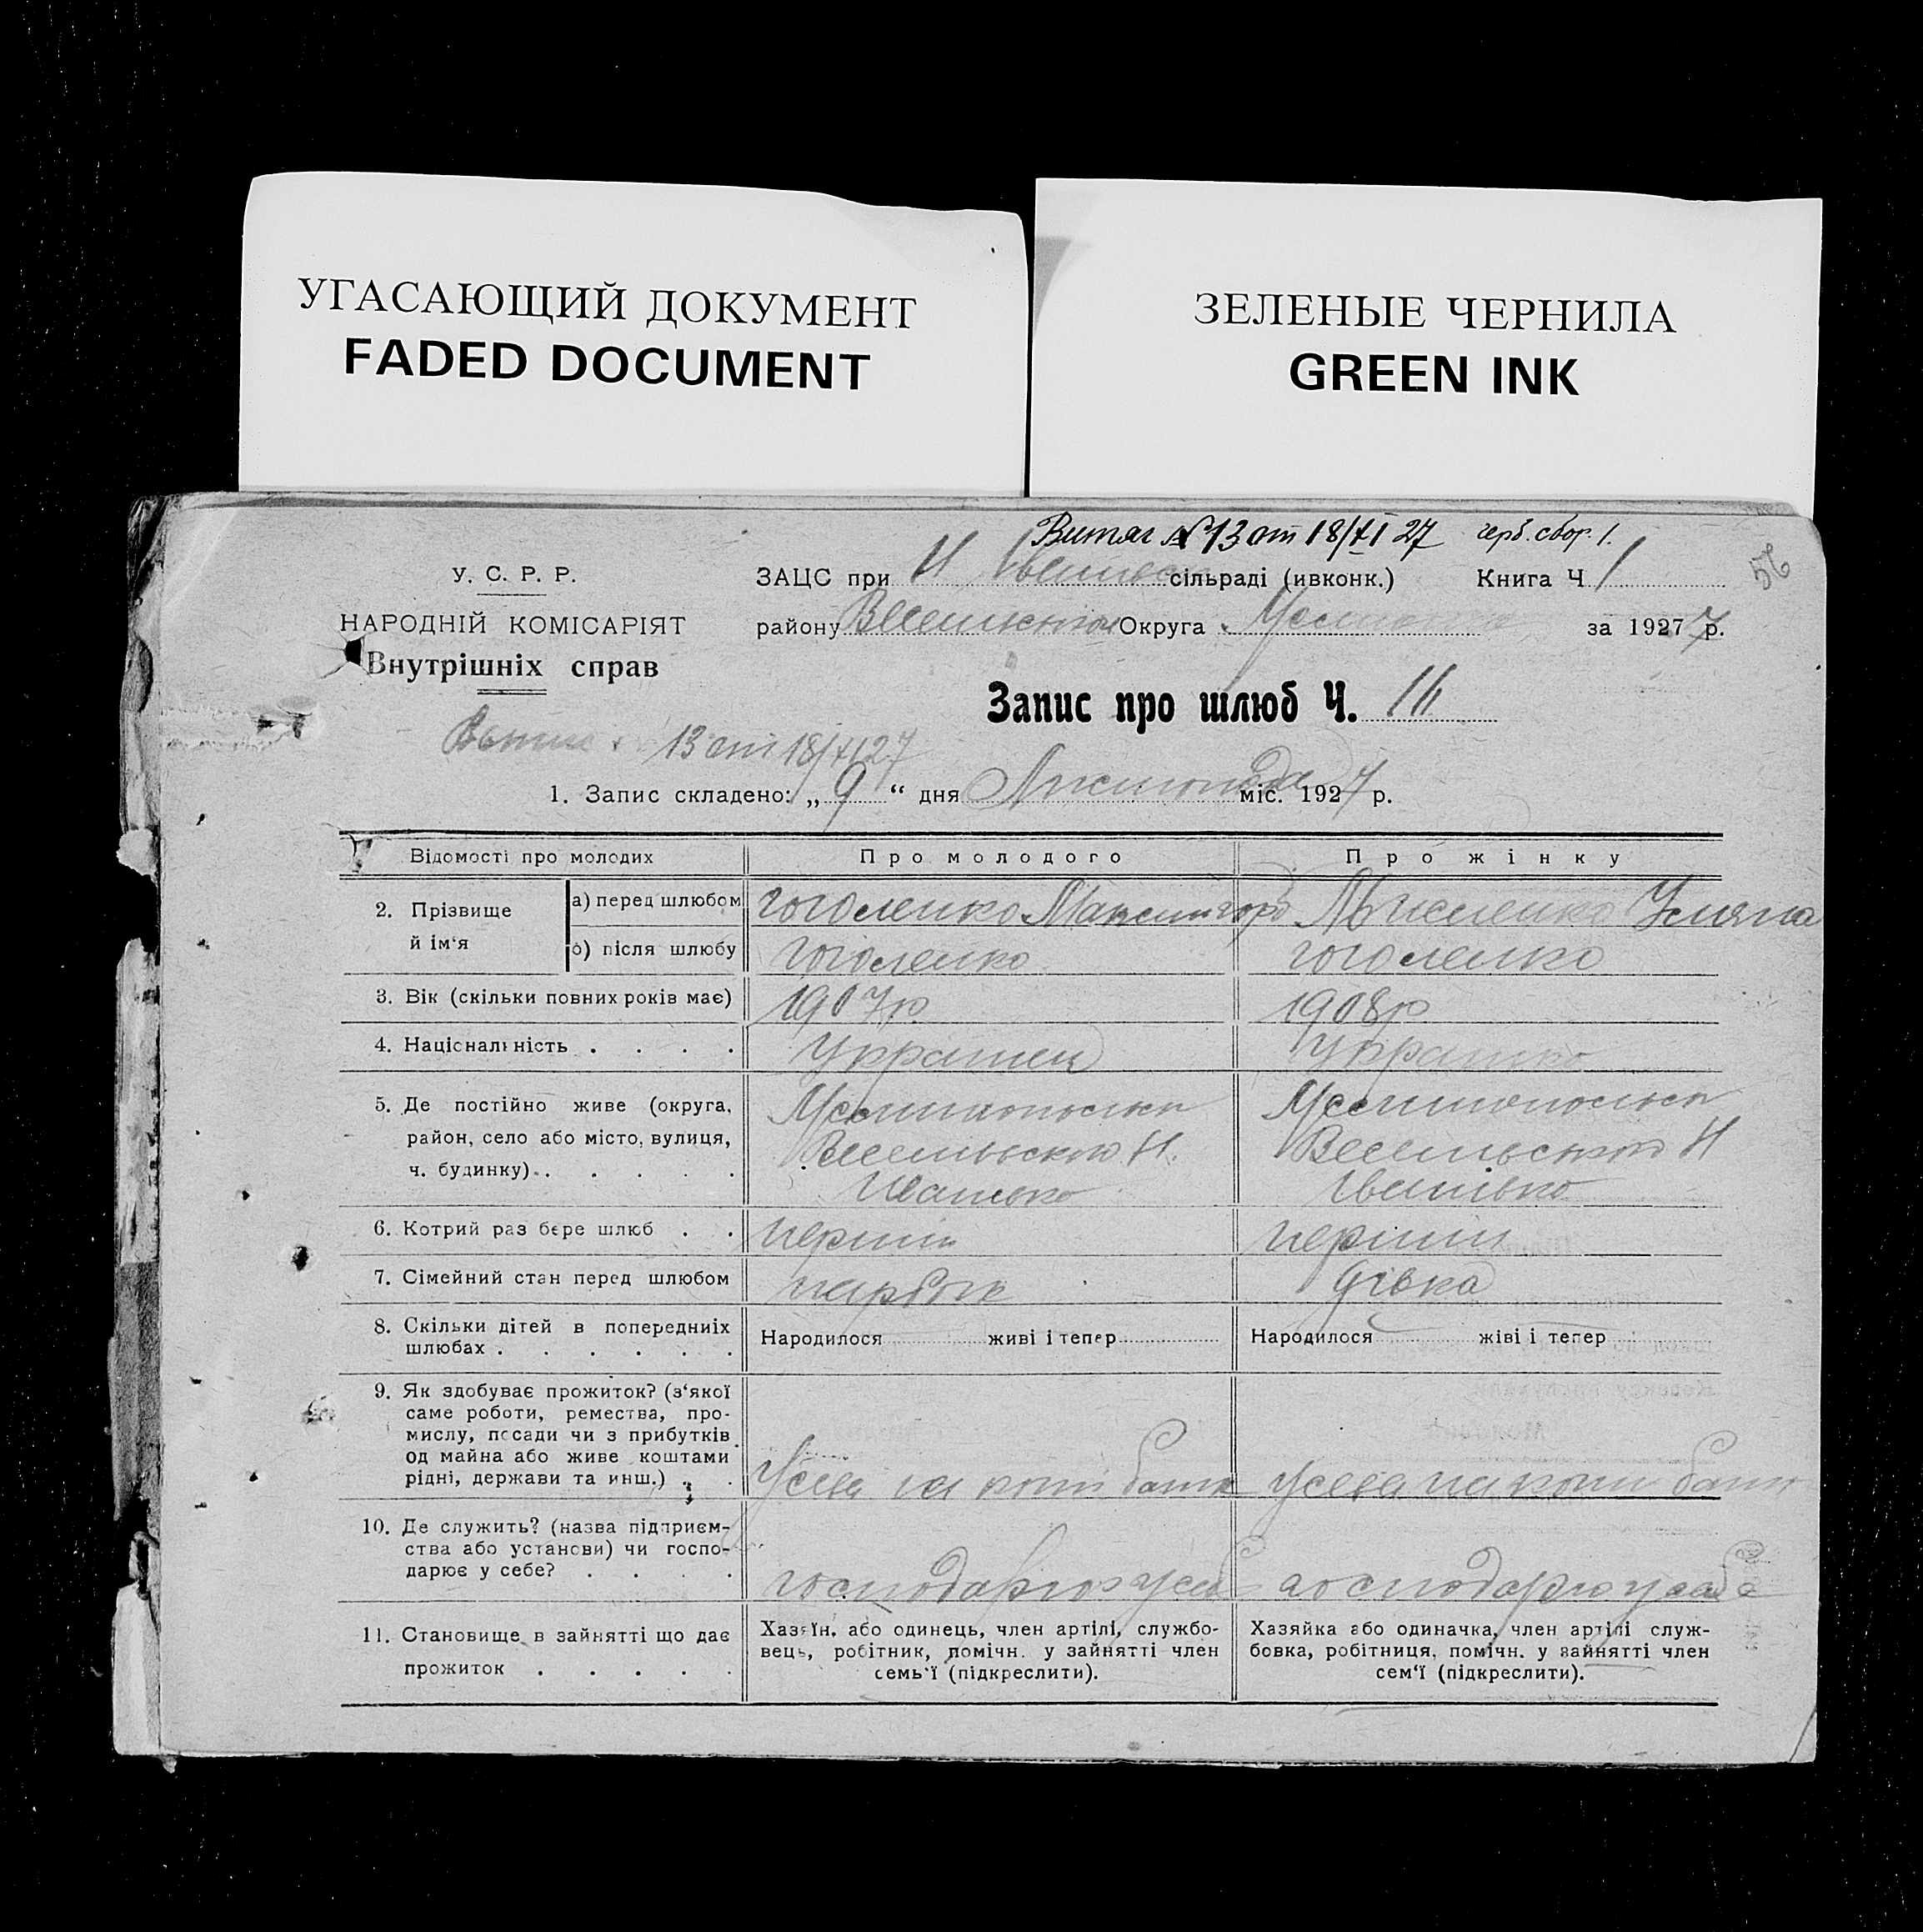 УГАСАЮЩИЙ ДОКУМЕНТ
FADED DOCUMENT
ЗЕЛЕНЫЕ ЧЕРНИЛА
GREEN INK
Витяг № 13 от 18/XI 27 герб. сбор. 1.
У. С. Р. Р.
НАРОДНІЙ КОМІСАРІЯТ
Внутрішніх справ
56
ЗАЦС при Н сільраді (ивконк.) Книга Ч 1
району Округа за 1927 7 р.
Запис про шлюб Ч.
13 от 18/XI 27
1. Запис складено: „9“ дня Листопада міс. 1927 р.
Відомості про молодих
Про молодого
Про жінку
2. Прізвище й ім‘я
а) перед шлюбом
гоголенко Максим
б) після шлюбу
гоголенко
гоголенко
3. Вік (скільки повних років має)
1907р
1908р
4. Національність . . . .
Украинец
Украинка
5. Де постійно живе (округа,
район, село або місто, вулиця,
ч. будинку) . . . . .
Весельского Н.
Весельського Н
6. Котрий раз бере шлюб . .
перший
перший
7. Сімейний стан перед шлюбом
парубок
дівка
8. Скільки дітей в попередніх
шлюбах . . . . . .
Народилося живі і тепер
Народилося жіві і тепер
9. Як здобуває прожиток? (з‘якої
саме роботи, ремества, про-
мислу, посади чи з прибутків
од майна або живе коштами
рідні, держави та инш.) . .
10. Де служить? (назва підприєм-
ства або установи) чи госпо-
дарює у себе? . . . .
господарює у себе
господарює у себе
11. Становище в зайнятті що дає
прожиток . . . . .
Хазяїн, або одинець, член артілі, службо-
вець, робітник, помічн. у зайнятті член
семь‘ї (підкреслити).
Хазяйка або одиначка, член артілі служ-
бовка, робітниця, помічн. у зайнятті член
сем‘ї (підкреслити).